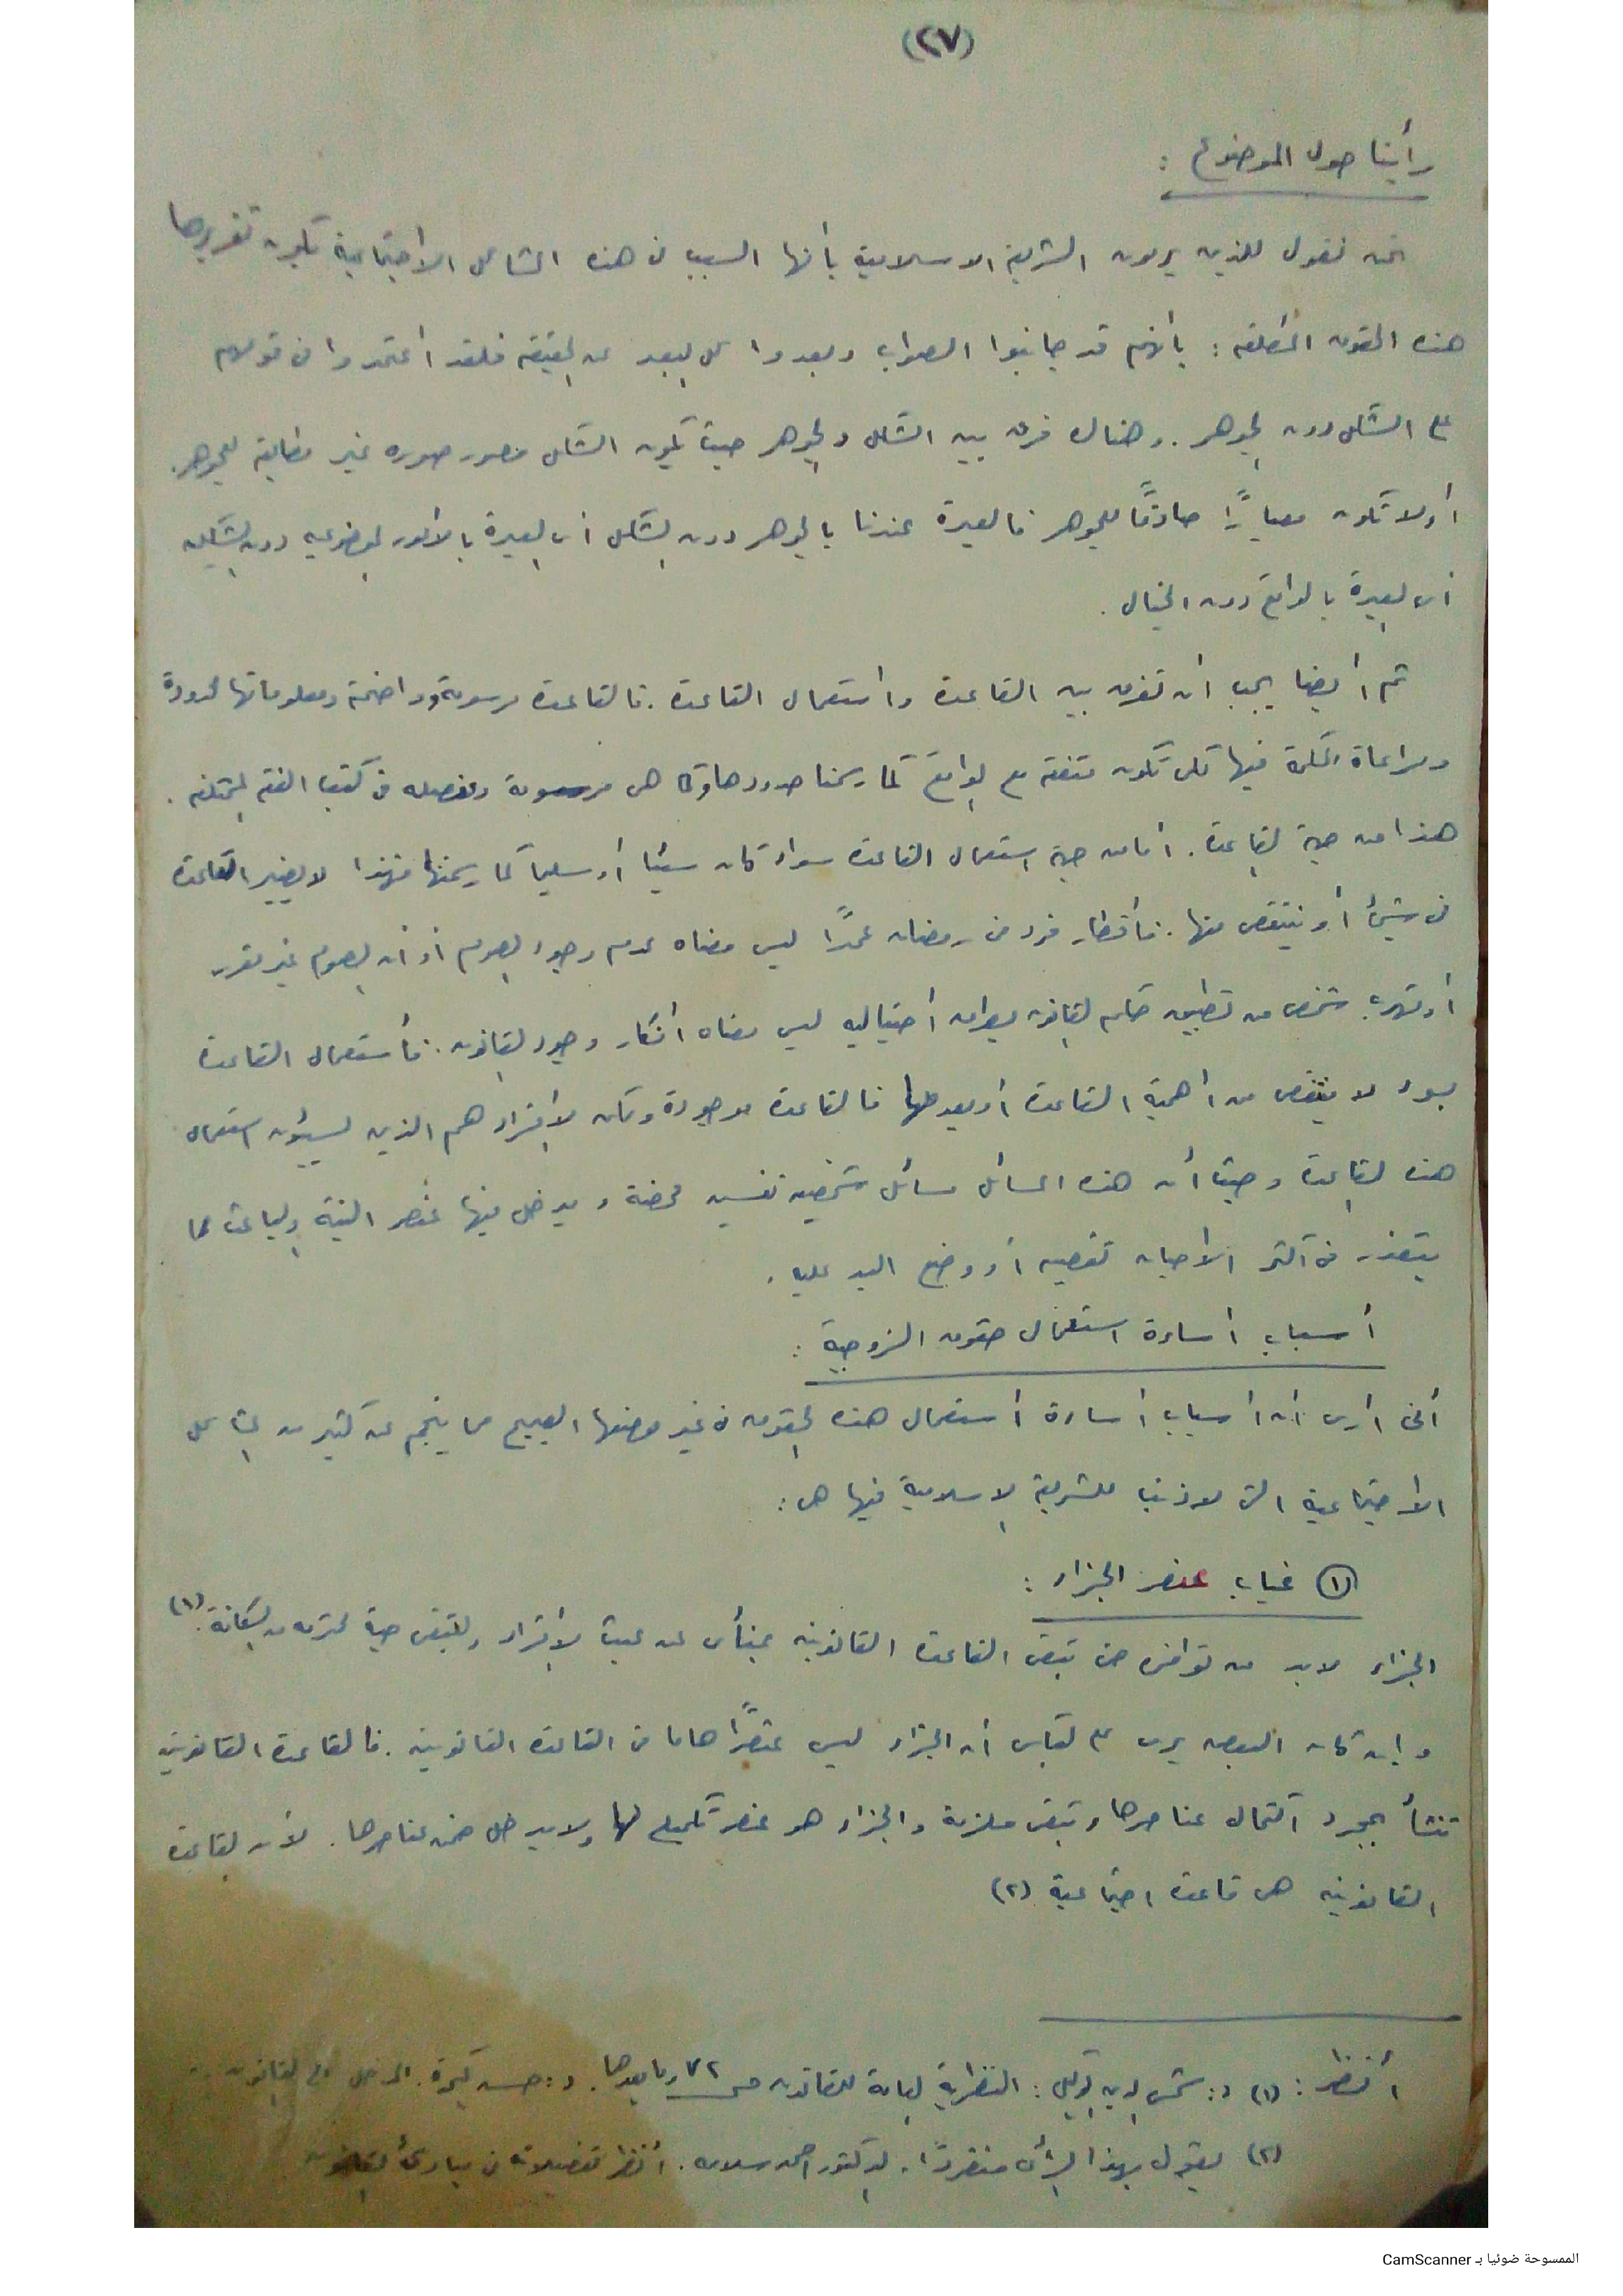 (٢٧)
رأينا حول الموضوع :
نحن نقول للذين يرمون الشريعة الاسلامية بأنها السبب في هذه المشاكل الاجتماعية تقريرها
هذه الحقوق المطلقة : بأنهم قد جانبوا الصواب وبعدوا كل البعد عن الحقيقة فلقد اعتمدوا في قولهم
على الشكل دون الجوهر . وهناك فرق بين الشكل والجوهر حيث يكون الشكل صوره غير مطابقة للجوهر .
أو لا تكون معيارًا صادقًا للجوهر فالعبرة عندنا بالجوهر دون الشكل أي العبرة بالامور الموضوعيه دون الشكليه
أي العبرة بالواقع دون الخيال .
ثم أيضا يجب أن نفرق بين القاعدة واستعمال القاعدة . فالقاعدة مرسومة وواضحة ومعلوماتها محدودة
ومراعاة الحكمة فيها لكي تكون متفقة مع الواقع كما رسمنا حدودها وكما هي مرسومة ومفصله في كتب الفقه المختلفه .
هذا من جهة القاعدة . أما من جهة استعمال القاعدة سواء كان سيئا أو سليما كما رسمتها فهذا لا يغير القاعدة
في شيئ أو ينتقص منها . فأفطار فرد في رمضان عمدًا ليس معناه عدم وجود الصوم أو أن الصوم غير مقرر
أو تهرب شخص من تطبيق حكم القانون بطرق أحتياليه ليس معناه أنكار وجود القانون . فأستعمال القاعدة
بسوء لا ينتقص من أهمية القاعدة أو يعدمها فالقاعدة موجودة ولكن الأفراد هم الذين يسيئون استعمال
هذه القاعدة وحيث أن هذه المسائل مسائل شخصيه نفسيه محضة ويدخل فيها عنصر النية والباعث مما
يتعذر في أكثر الاحيان تقصيه أو وضع اليد عليه .
أسباب أساءة استعمال حقوق الزوجية :
أنني أرى أن أسباب أساءة أستعمال هذه الحقوق في غير موضعها الصحيح مما ينجم عنه كثير من المشاكل
الاجتماعية التي لا ذنب للشريعة الاسلامية فيها هي :
(١) غياب عنصر الجزاء :
الجزاء لابد من توافره حتى تبقى القاعدة القانونيه بمنأى عن عبث الأفراد ولتبقى حية محترمه من الكافة . (١)
وإن كان البعض يرى أن الجزاء ليس عنصرًا هاما في القاعدة القانونيه . فالقاعدة القانونيه
تنشأ بمجرد أكتمال عناصرها وتبقى ملزمة والجزاء هو عنصر تكميلي لها ولا يدخل ضمن عناصرها . لأن القاعدة
القانونيه هي قاعدة اجتماعية (٢)
أنظر : (١) د : شمس الدين الوكيل : النظرية العامة للقانون ص ٧٢ وما بعدها . د : حسن كيرة . المدخل الى القانون
(٢) يقول بهذا الرأي منفردًا . الدكتور احمد سلامه . أنظر تفصيلاته في مبادئ القانون